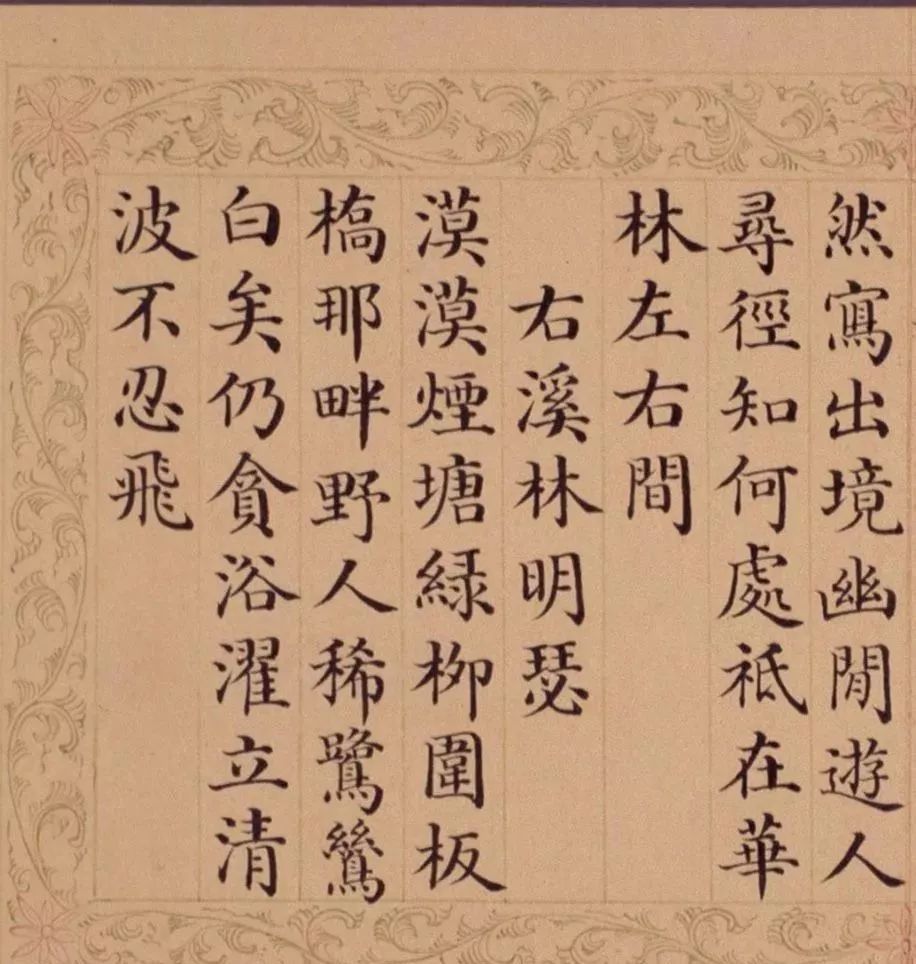 然寫出境幽閒遊人
尋徑知何處祗在華
林左右間
右溪林明瑟
漠漠煙塘緑柳圍板
橋那畔野人稀鷺鷥
白矣仍貪浴濯立清
波不忍飛